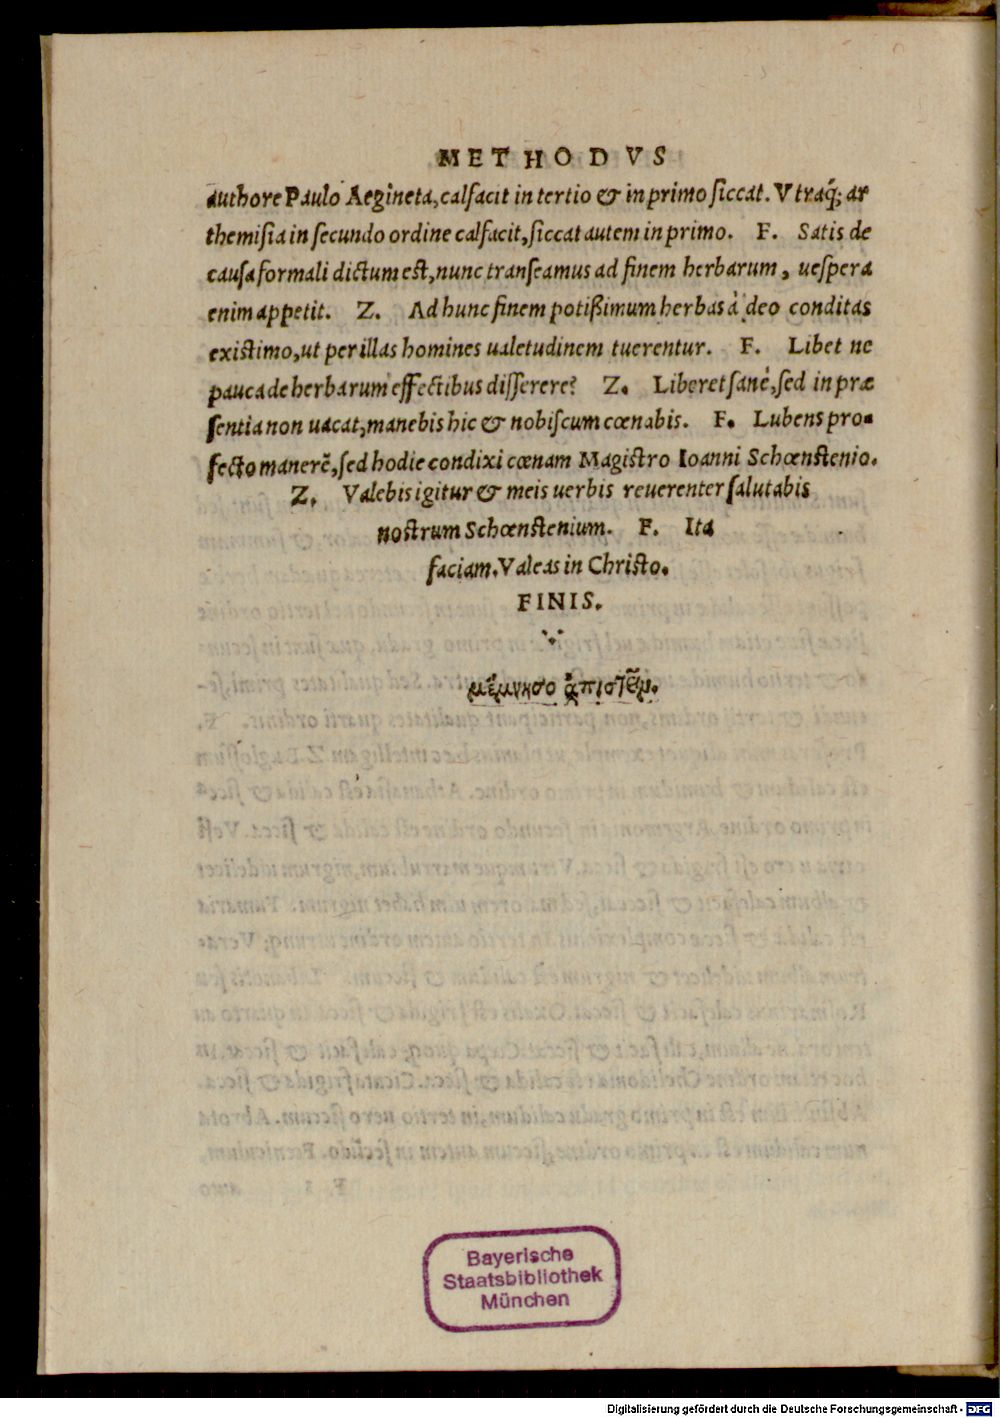 METHODVS
authore Paulo Aegineta, calfacit in tertio & in primo ſiccat. Vtraq́; ar
themiſia in ſecundo ordine calfacit, ſiccat autem in primo. F. Satis de
cauſa formali dictum eſt, nunc tranſeamus ad finem herbarum, ueſpera
enim appetit. Z. Ad hunc finem potißimum herbas à deo conditas
exiſtimo, ut per illas homines ualetudinem tuerentur. F. Libet ne
pauca de herbarum effectibus diſſerere? Z. Liberet ſanè, ſed in præ
ſentia non uacat, manebis hic & nobiſcum cœnabis. F. Lubens pro-
fecto manerē, ſed hodie condixi cœnam Magiſtro Ioanni Schœnſtenio.
Z. Valebis igitur & meis uerbis reuerenter ſalutabis
noſtrum Schœnſtenium. F. Ita
faciam. Valeas in Chriſto.
FINIS.
μέμνησο ἀπιστεῖν.
Bayerische
Staatsbibliothek
München
Digitalisierung gefördert durch die Deutsche Forschungsgemeinschaft - DFG